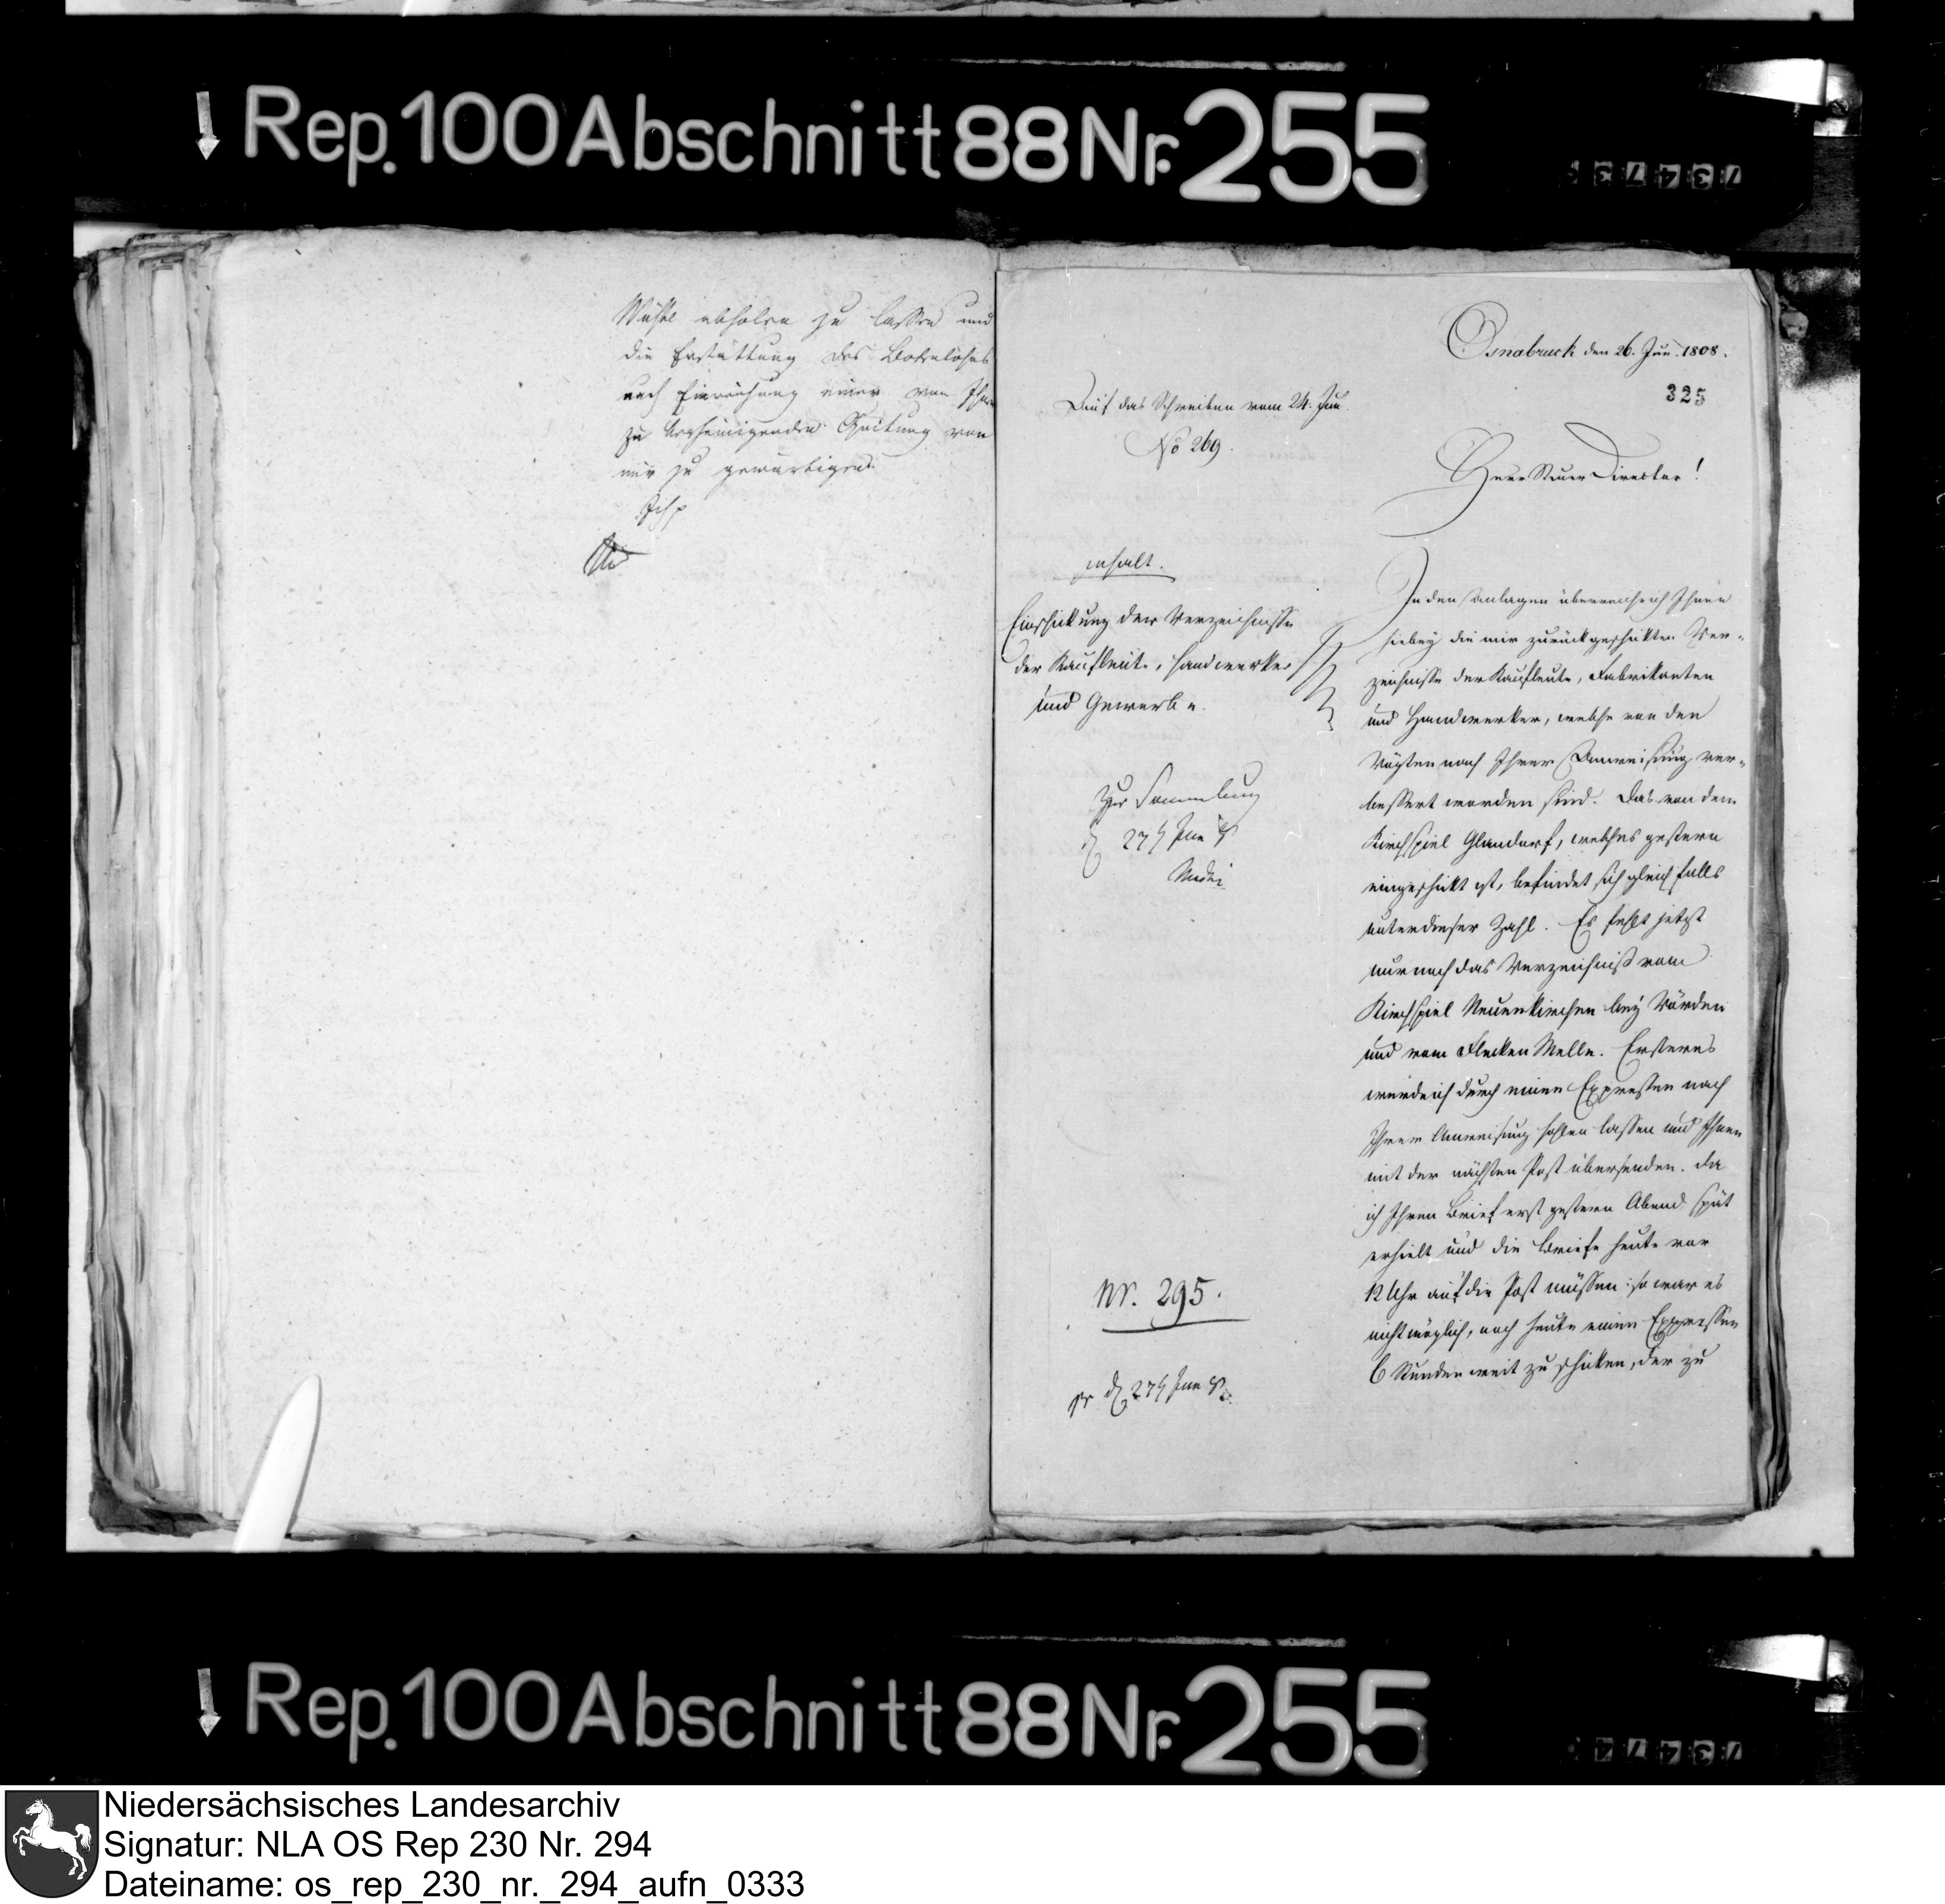 Rep. 100 Abschnitt 88 Nr. 255
Wühle abholen zu lassen und
die Erstattung des Botenlohns
nach Einreichung einer von Ihnen
zu bescheinigenden Quitung von
mir zu gewärtigen.
Osnabruck den 26. Jun. 1808.
325
Auf das Schreiben vom 24. Jun.
No 269.
Herr Steuer Director!
Inhalt.
Einschickung der Verzeichnisse
der Kaufleute, Handwerker
und Gewerbe.
zur Sammlung
27 Jun
Nr. 295.
pr d 27 Jun
In den Anlagen überreiche ich Ihnen
hiebey die mir zurückgeschikten Ver-
zeichnisse der Kaufleute, Fabrikanten
und Handwerker, welche von den
Vögten nach Ihrer Anweisung ver-
bessert worden sind. Das von dem
Kirchspiel Glandorf, welches gestern
eingeschikt ist, befindet sich gleichfalls
unter dieser Zahl. Es fehlt jetzt
nur noch das Verzeichniß vom
Kirchspiel Neuenkirchen bey Vörden
und vom Flecken Melle. Ersteres
werde ich durch einen Expressen nach
Ihrer Anweisung hohlen lassen und Ihnen
mit der nächsten Post übersenden. Da
ich Ihren Brief erst gestern Abend spät
erhielt und die Briefe heute vor
12 Uhr auf die Post müssen: so war es
nicht möglich, noch heute einen Expressen
6 Stunden weit zu schicken, der zu
Rep. 100 Abschnitt 88 Nr. 255
Niedersächsisches Landesarchiv
Signatur: NLA OS Rep 230 Nr. 294
Dateiname: os_rep_230_nr._294_aufn_0333